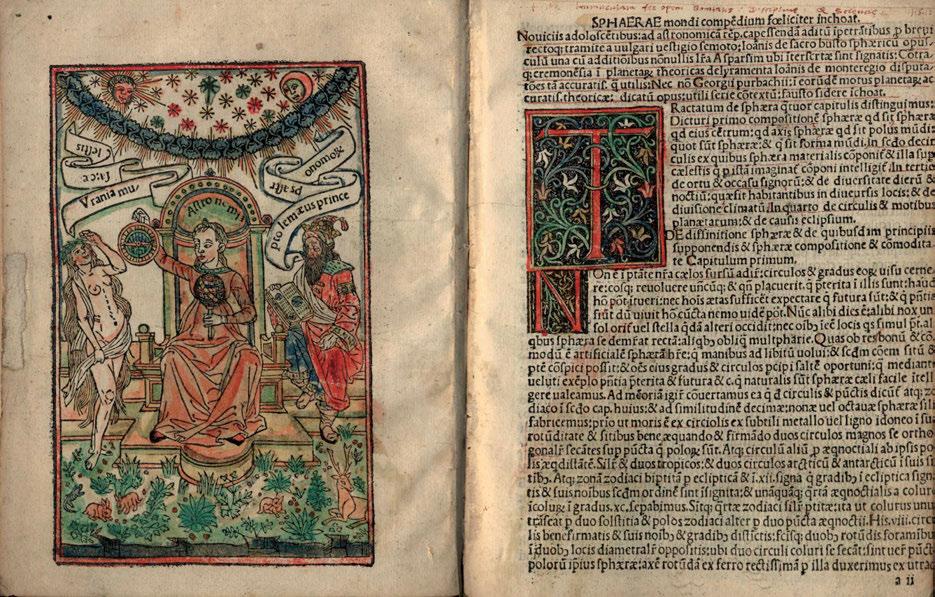 Urania mu
sa cælestis
Astronomia
ptolemæus prince
ps astr
onomoꝝ
SPHAERAE mondi compēdium fœliciter inchoat.
Nouiciis adolescētibus: ad astronomicā rēp. capessendā aditū īpetrātibus p breui
rectoq; tramite a uulgari uestigio semoto: Ioānis de sacro busto sphæricū opus
culū una cū additiōibus nonnullis
q; cremonēsia ī planetaꝝ theoricas delyramenta Ioanis de monteregio disputa
tōes tā accuratis. q̄ utilis: Nec nō Georgii purbachii: ī eorūdē motus planetaꝝ ac
curatis. theoricæ: dicatū opus: utili serie cōtextū: fausto sidere īchoat.
TRactatum de sphæra q̄tuor capitulis distinguimus:
Dicturi primo compositionē sphæræ qd sit sphæra
qd eius cētrum: qd axis sphæræ qd sit polus mūdi:
quot sūt sphæræ: & q̄ sit forma mūdi. In secdo de cir
culis ex quibus sphæra materialis cōponit & illa sup
cælestis q̄ p istā imaginat cōponi intelligit. In tertio
de ortu & occasu signorū: & de diuersitate dierū &
noctiū: quæ sit habitantibus in diuersis locis: & de
diuisione climatū. In quarto de circulis & motibus
planetarum: & de causis eclipsium.
DE diffinitione sphæræ & de quibusdam principiis
supponendis & sphæræ compositione & cōmodita
te Capitulum primum.
NOn ē ī ptāte nr̄a cælos sursū adir̄: circulos & gradus eoꝝ uisu cerne
re: eosq; reuoluere uncūq; & qn̄ placuerit. q̄ pterita ī illis sunt: haud
hō pot itueri: nec hoīs ætas sufficēt expectare q̄ futura sūt: & q̄ pn̄tia
sūt dū uiuit hō cūcta nemo uidē pōt. Nūc alibi dies ē: alibi nox un
sol orif uel stella q̄dā alteri occidit: nec oībꝫ ieē locis qs simul pr̄. al
qbus sphæra se demr̄at recta: aliqbꝫ obliq̄ multpharie. Quas ob res bonū & cō
modū ē artificialē sphærā hr̄e: q̄ manibus ad libitū uolui: & scdm cōem sitū &
ptē cōspici possit: & oēs eius gradus & circulos pcipi salte oportuni: q̄ mediant
ueluti exēplo pn̄tia pterita & futura & c. q̄ naturali sūt sphæræ cæli facile ītelli
gere ualeamus. Ad memoriā igir̄ couertamus ea q̄ d̄ circulis & pūctis dicūt atq; zo
diaco ī secdo cap. huius: & ad similitudinē decimæ: nonæ uel octauæ sphæræ sili
fabricemus: prio ut moris ē ex circiolis ex subtili metallo uel ligno idoneo ī su
rotūditate & sitibus bene æquando & firmādo duos circulos magnos se ortho
gonalr̄ secātes sup pūcta q̄ poloꝝ sūt. Atq; circulū aliū p æqnoctiali ab ipsis po
lis æqdistātē. Silr̄ & duos tropicos: & duos circulos arcticū & antarcticū ī suis si
tibꝫ. Atq; zonā zodiaci biptitā p ecliptica & ī. xii. signa q̄ gradibꝫ ī ecliptica signa
tis & suis noībus scdm ordinē sint isignita: & unāquāq; q̄rtā æqnoctialis a colurū
ī coluꝝ ī gradus. xc. sepabimus. Sitq; q̄rtæ zodiaci silr̄ ptitæ: ita ut colurus unus
trāseat p duo solstitia & polos zodiaci alter p duo pūcta æqnoctii. His. viii. circu
lis bene firmatis & suis noībꝫ & gradibꝫ distīctis: feīsq; duobꝫ rotūdis foramibus
ī duobꝫ locis diametralr̄ oppositis: ubi duo circuli coluri se secāt: sint uer̄ pūcta
poloꝝ ipius sphæræ: axē rotūdā ex ferro rectissimā p illa duxerimus ex utraq
a ii